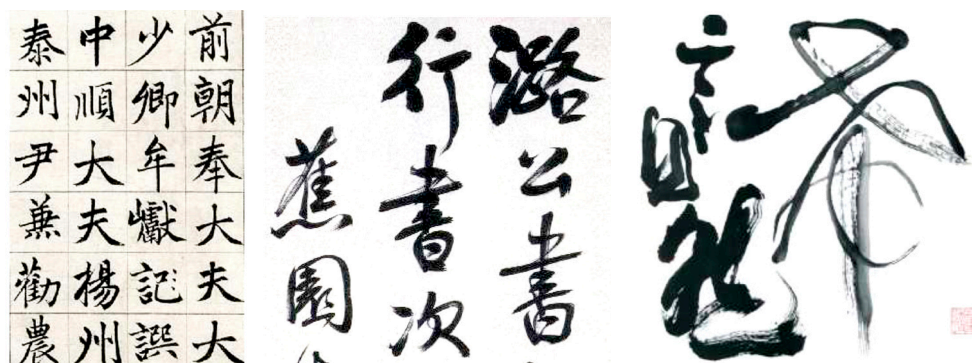 前朝奉大夫大
少卿牟巘記譔
中順大夫楊州
泰州尹兼勸農
潞公書
行書次
蕉園
希
言自然